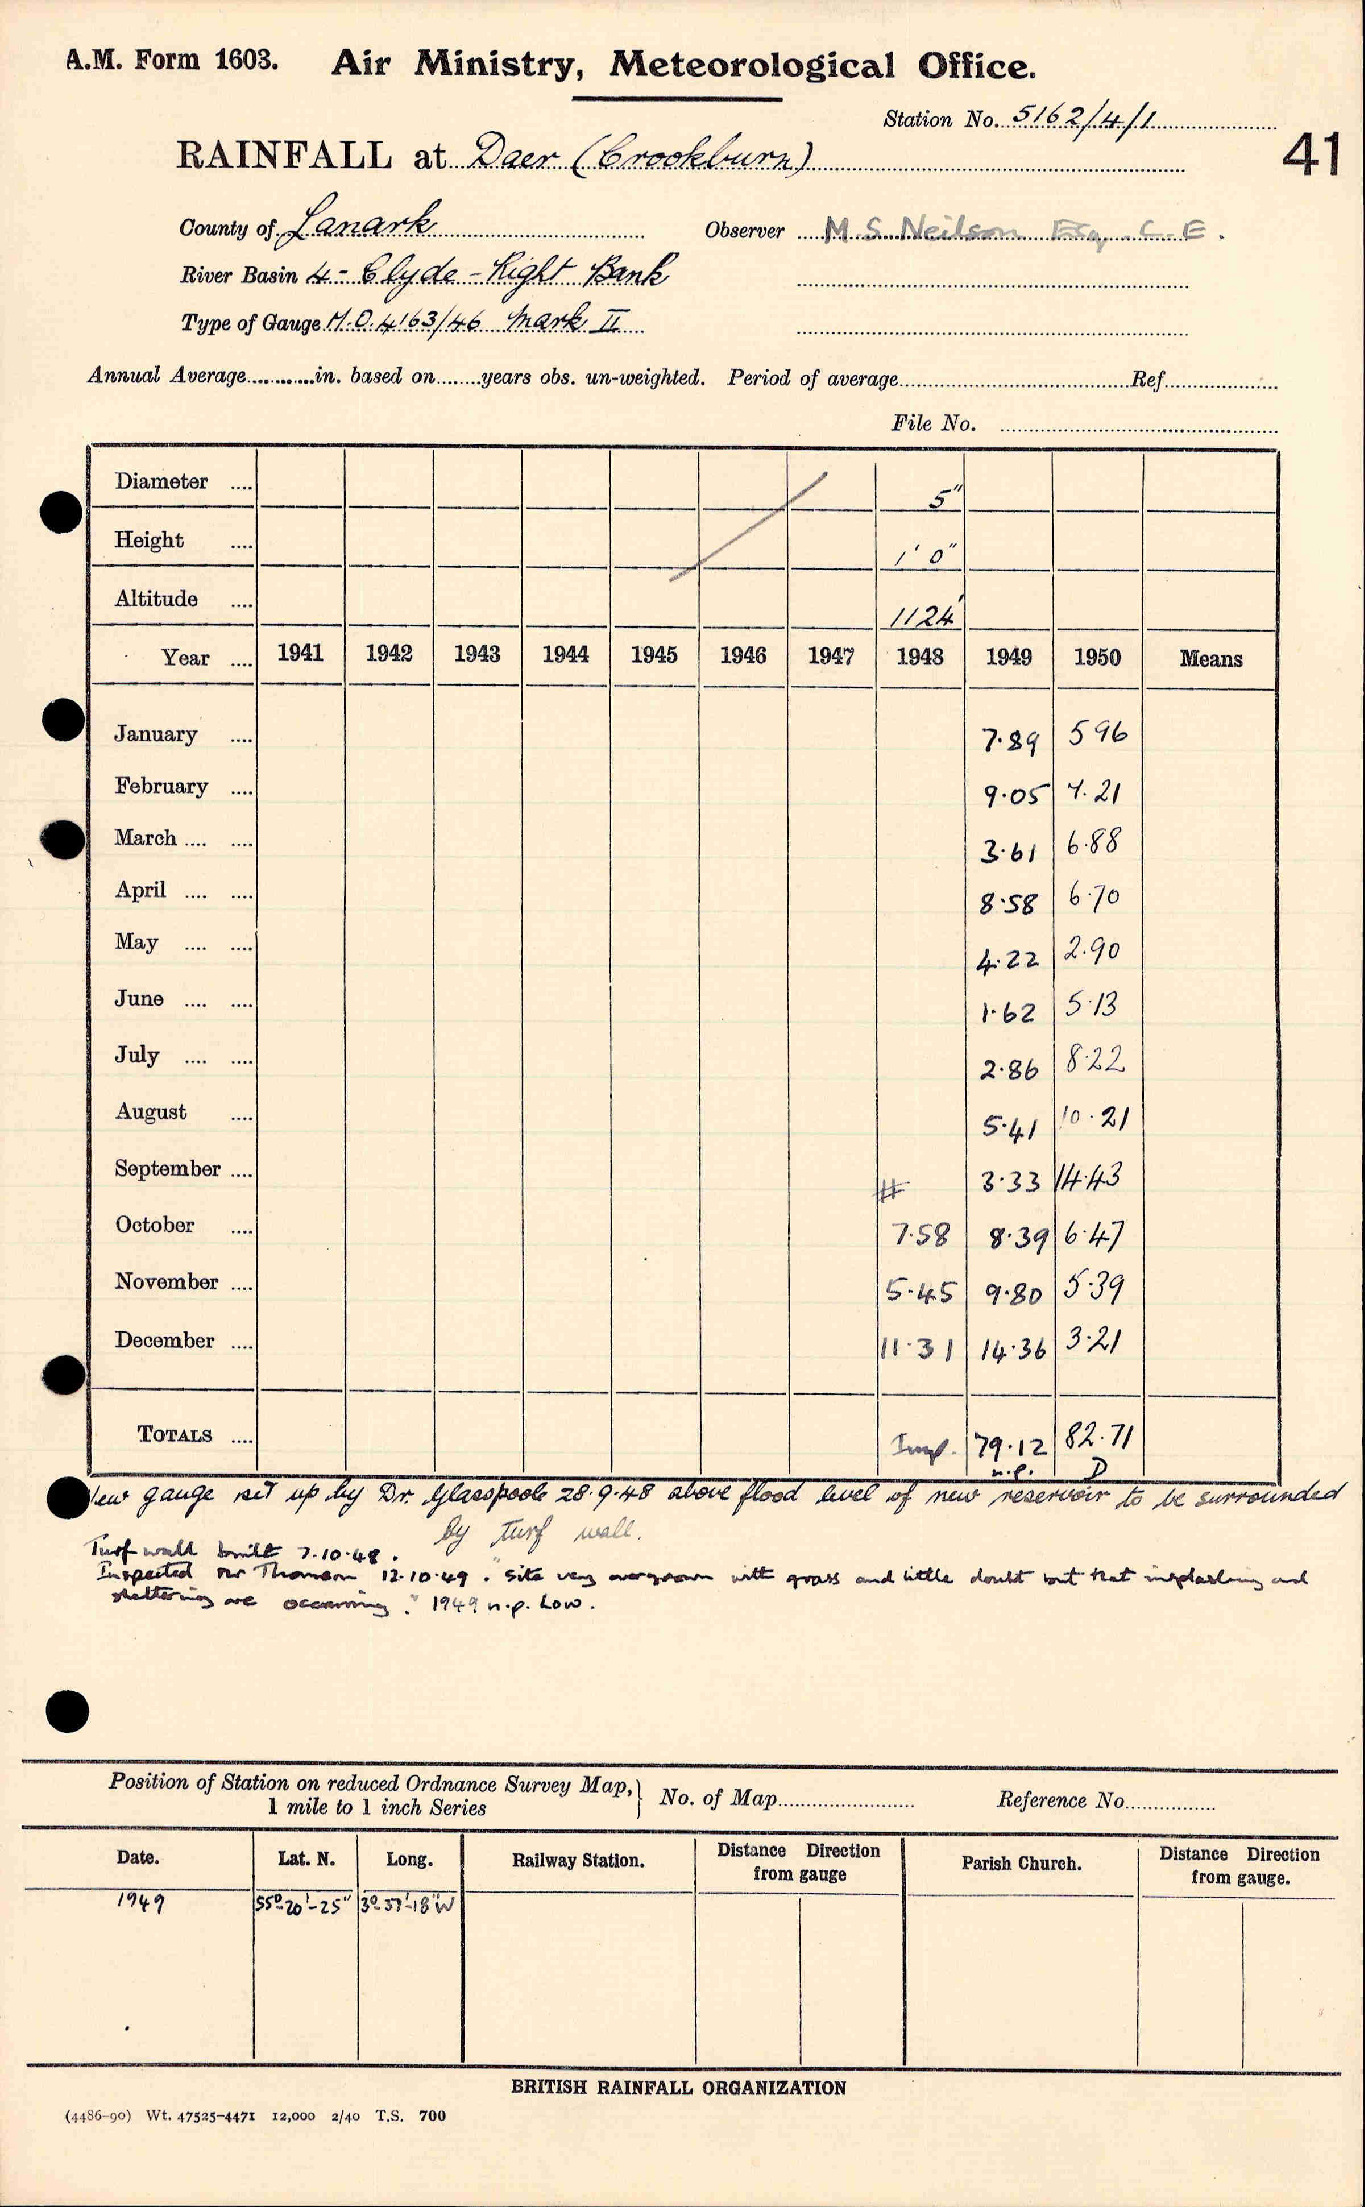 A.M. Form 1603. Air Ministry, Meteorological Office.
Station No. 5162/4/1
41
RAINFALL at Daer (Crookburn)
County of Lanark Observer M.S. Neilson Esq. C.E.
River Basin 4 - Clyde - Right Bank
Type of Gauge M.O. 4163/46 Mark II
Annual Average............in. based on........years obs. un-weighted. Period of average............Ref............
File No. ............
Diameter .... 5"
Height .... 1' 0"
Altitude .... 1124'
Year .... 1941 1942 1943 1944 1945 1946 1947 1948 1949 1950 Means
January .... 7.89 5 96
February .... 9.05 7.21
March .... .... 3.61 6.88
April .... .... 8.58 6.70
May .... .... 4.22 2.90
June .... .... 1.62 5.13
July .... .... 2.86 8.22
August .... 5.41 10.21
September .... # 3.33 14.43
October .... 7.58 8.39 6.47
November .... 5.45 9.80 5.39
December .... 11.31 14.36 3.21
TOTALS .... Imp. 79.12 82.71
n.p. D
New gauge set up by Dr. Glasspoole 28.9.48 above flood level of new reservoir to be surrounded
by turf wall.
Turf wall built 7.10.48.
Inspected Mr Thomson 12.10.49. "Site very overgrown with grass and little doubt but that insplashing and
sheltering are occurring." 1949 n.p. Low.
Position of Station on reduced Ordnance Survey Map, } No. of Map............ Reference No............
1 mile to 1 inch Series
Date. Lat. N. Long. Railway Station. Distance Direction from gauge Parish Church. Distance Direction from gauge.
1949 55°-20'-25" 3°-37'-18" W
BRITISH RAINFALL ORGANIZATION
(4486-90) Wt. 47525-4471 12,000 2/40 T.S. 700